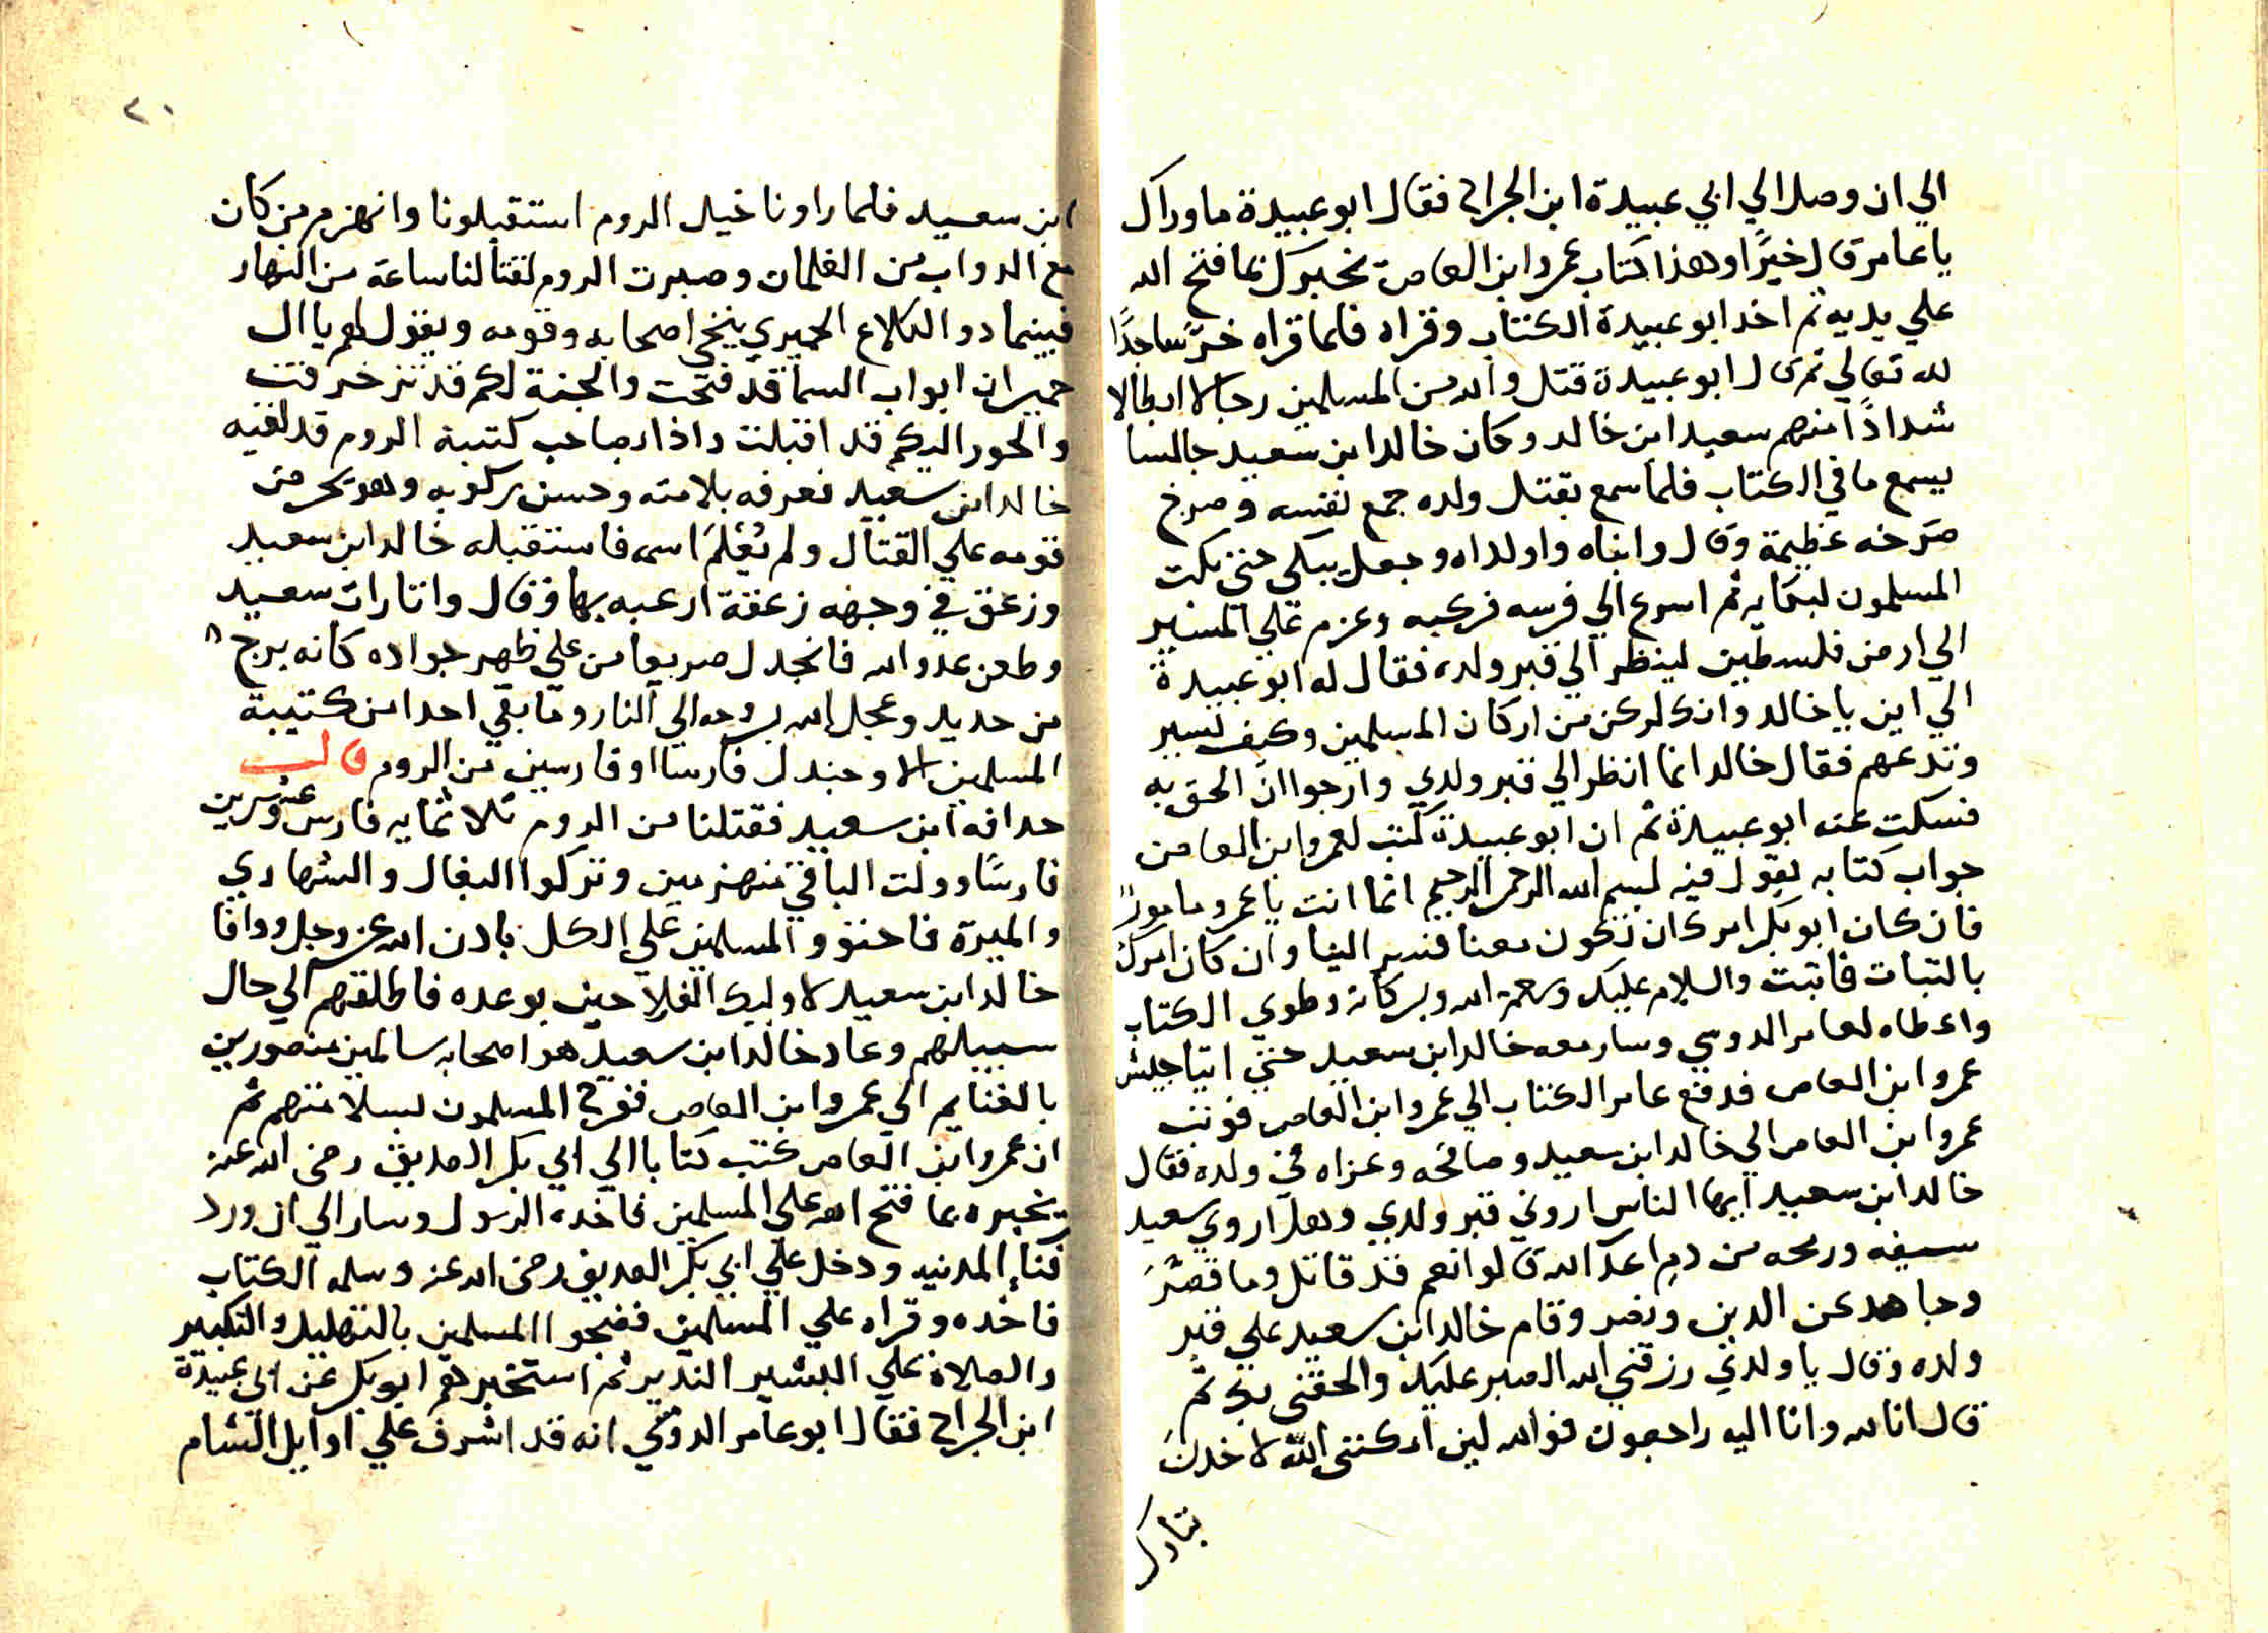 الي ان وصل الي ابي عبيدة ابن الجراح فقال ابو عبيدة ما وراك
يا عامر قال خيرًا وهذا كتاب عمروا ابن العاص نخبرك بما فتح الله
علي يديه ثم اخد ابو عبيدة الكتاب وقراه فلما قراه خرّ ساجدًا
لله تعالي ثم قال ابو عبيدة قتل والله من المسلمين رجالا ابطالا
شدادًا منهم سعيد ابن خالد وكان خالد ابن سعيد جالسا
يسمع ما في الكتاب فلما سمع بقتل ولده جمع نفسه وصرخ
صرخه عظيمة وقال وابناه واولداه وجعل يبكي حتي بكت
المسلمون لبكايه ثم اسرع الي فرسه فركبه وعزم علي المسير
الي ارض فلسطين لينظر الي قبر ولده فقال له ابو عبيدة
الي اين يا خالد وانك لركن من اركان المسلمين وكيف تسير
وتدعهم فقال خالد انما انظر الي قبر ولدي وارجوا ان الحق به
فسكت عنه ابو عبيدة ثم ان ابو عبيدة كتب لعمروا ابن العاص
جواب كتابه يقول فيه بسم الله الرحمن الرحيم انما انت يا عمرو مامورً
فان كان ابو بكر امرك ان تكون معنا فسير الينا وان كان امرك
بالتبات فاتبت والسلام عليك ورحمة الله وبركاته وطوي الكتاب
واعطاه لعامر الدوسي وسار معه خالد ابن سعيد حتي اتيا جيش
عمروا ابن العاص فدفع عامر الكتاب الي عمروا ابن العاص فوتب
عمروا ابن العاص الي خالد ابن سعيد وصافحه وعزاه في ولده فقال
خالد ابن سعيد ايها الناس اروني قبر ولدي وهل اروي سعيد
سيفه ورمحه من دم اعداالله قالوا نعم قد قاتل وما قصّرَ
وجاهد عن الدين ونصر وقام خالد ابن سعيد علي قبر
ولده وقال يا ولدي رزقني الله الصبر عليك والحقني بك ثم
قال انا لله وانا اليه راجعون فوالله لين امكنني الله لاخدن
بتارك
٢٠
ابن سعيد فلما راونا خيل الروم استقبلونا وانهزم من كان
مع الدواب من الغلمان وصبرت الروم لقتالنا ساعة من النهار
فبينما دو الكلاع الحميري ينخي اصحابه وقومه ويقول لهم يا ال
حمير ان ابواب السما قد فتحت والجنة لكم قد تزخرفت
والحور اليكم قد اقبلت واذا بصاحب كتيبة الروم قد لقيه
خالد ابن سعيد فعرفه بلامته وحسن ركوبه وهو يحرض
قومه علي القتال ولم يُعْلمَ اسمه فاستقبله خالد ابن سعيد
وزعق في وجهه زعقة ارعبه بها وقال واتارات سعيد
وطعن عدوالله فانجدل صريعا من علي ظهر جواده كانه برج
من حديد وعجل الله بروحه الي النار وما بقي احدا من كتيبة
المسلمين الا وجندل فارسا او فارسين من الروم قال
حدافه ابن سعيد فقتلنا من الروم ثلاثمايه فارس وعشرين
فارسًا وولت الباقي منهزمين وتركوا البغال والشهاري
والميرة فاحتوو المسلمين علي الكل بادن الله عز وجل ووافا
خالد ابن سعيد لاوليك الفلاحين بوعده فاطلقهم الي حال
سبيلهم وعاد خالد ابن سعيد هو اصحابه سالمين منصورين
بالغنايم الي عمروا ابن العاص ففرح المسلمون بسلامتهم ثم
ان عمروا ابن العاص كتب كتابا الي ابي بكر الصديق رضي الله عنه
يخبره بما فتح الله علي المسلمين فاخده الرسول وسار الي ان ورد
فناء المدنيه ودخل علي ابي بكر الصديق رضي الله عنه وسلمه الكتاب
فاخده وقراه علي المسلمين فضجوا المسلمين بالتهليل والتكبير
والصلاة علي البشير الندير ثم استخبرهم ابو بكر عن ابي عبيدة
ابن الجراح فقال ابو عامر الدوسي انه قد اشرف علي اوايل الشام